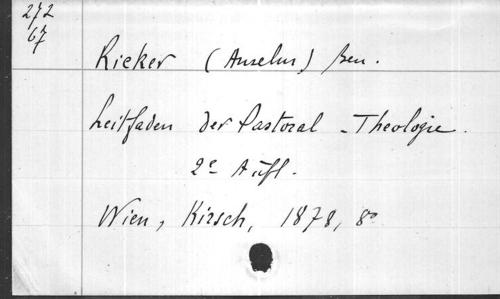 272
67
Ricker (Anselm) Ben.
Leitfaden der Pastoral - Theologie.
2e Aufl.
Wien, Kirsch, 1878, 8o